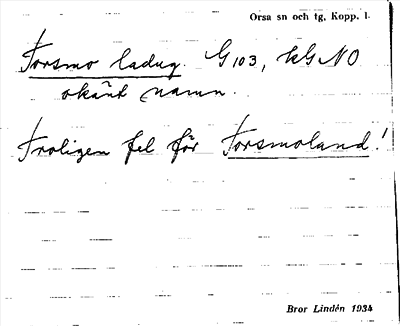 Orsa sn och tg, Kopp. l.
Torsmo ladug. G 103, kG NO
okänt namn.
Troligen fel för Torsmoland!
Bror Lindén 1934